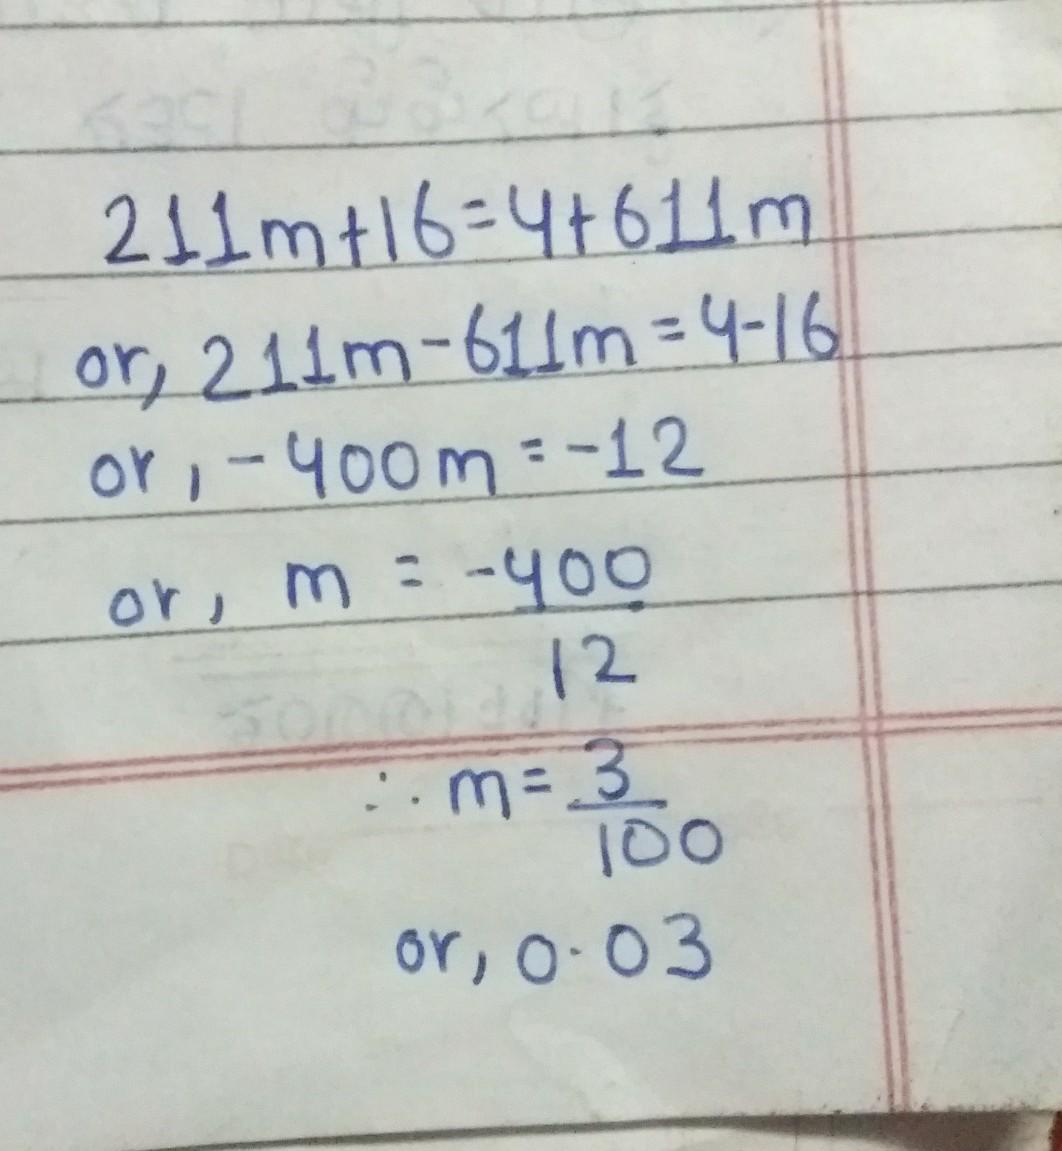 211m+16=4+611m
or, 211m-611m=4-16
or, -400m=-12
or, m = -400
12
∴ m= 3
100
or, 0.03